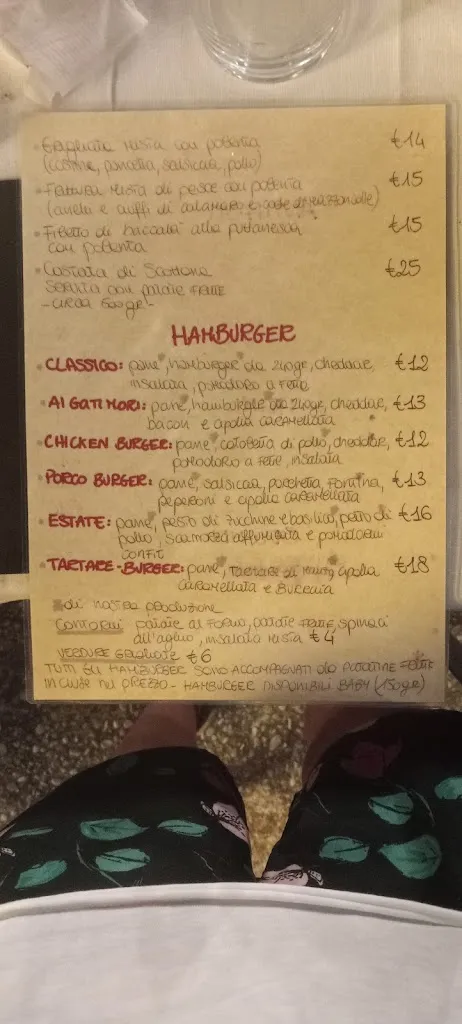 • Grigliata mista con polenta €14
(costine, pancetta, salsiccia, pollo)
• Frittura mista di pesce con polenta €15
(anelli e ciuffi di calamaro e code di mazzancolle)
• Filetto di baccalà alla puttanesca €15
con polenta
• Costata di Scottona €25
SERVITA con patate FRITTE
- circa 600gr -
HAMBURGER
• CLASSICO: pane*, hamburger da 240gr, cheddar, €12
insalata, pomodoro a Fette
• AI GATI MORI: pane, hamburger da 240gr, cheddar, €13
bacon e cipolla CARAMELLATA
• CHICKEN BURGER: pane*, cotoletta di pollo, cheddar, €12
pomodoro a Fette, insalata
• PORCO BURGER: pane*, salsiccia, porchetta, Fontina, €13
peperoni e cipolla CARAMELLATA
• ESTATE: pane*, pesto di zucchine e basilico, petto di €16
pollo, scamorza affumicata e pomodorini
CONFIT
• TARTARE-BURGER: pane*, TARTARE di cipolla €18
CARAMELLATA e BURRATA
*di nostra produzione
CONTORNI patate al Forno, patate FRITTE, spinaci
all'aglio, insalata mista €4
VERDURE GRIGLIATE €6
TUTTI GLI HAMBURGER SONO ACCOMPAGNATI da PATATINE FRITTE
INCLUSE nel PREZZO - HAMBURGER DISPONIBILI BABY (150gr)